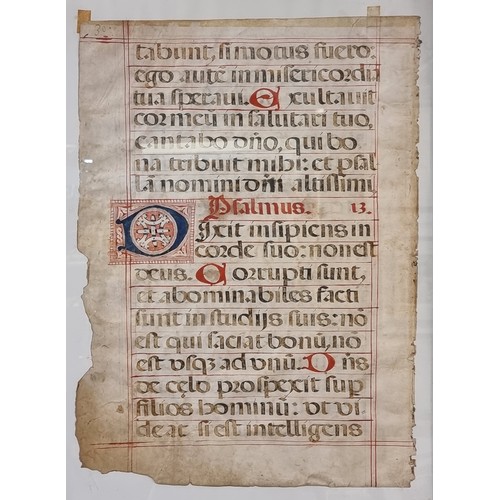 tabunt, si motus fuero.
ego autē in misericordia
tua speraui. Exultauit
cor meū in salutari tuo,
cantabo dño, qui bo
na tribuit mihi: et psal
lā nomini dñi altissimi
Psalmus. 13.
Dixit insipiens in
corde suo: non est
deus. Corrupti sunt,
et abominabiles facti
sunt in studijs suis: nō
est qui faciat bonū, nō
est vsqȝ ad vnū. Dñs
de cęlo prospexit sup
filios hominū: vt vi
deat si est intelligens